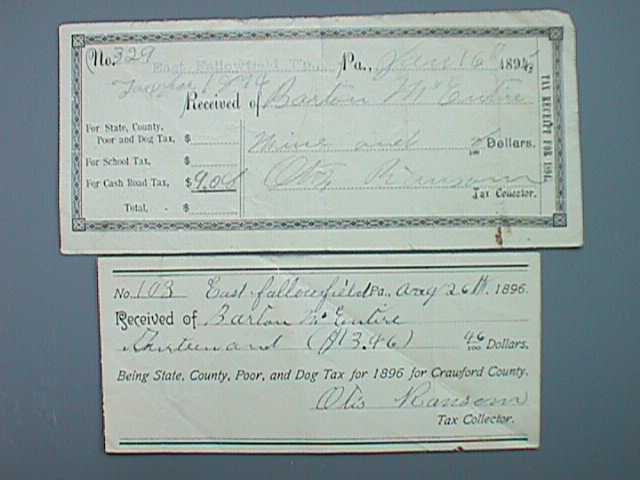 No. 329 East Fallowfield Tp., Pa., Jan 16th 1895
Tax for 1894
Received of Barton McEntire
For State, County, Poor and Dog Tax, $
Nine and 8/100 Dollars.
For School Tax, $
For Cash Road Tax, $9.08
Otis Ransom
Tax Collector.
Total, - $
TAX RECEIPT FOR 1894.
No. 103 East-fallowfield Pa., Aug 26th. 1896.
Received of Barton McEntire
Thirteen and ($13.46) 46/100 Dollars,
Being State, County, Poor, and Dog Tax for 1896 for Crawford County.
Otis Ransom
Tax Collector.